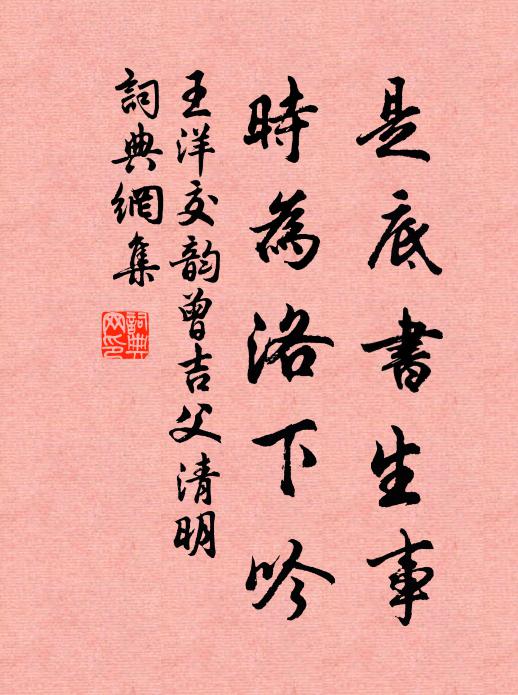 是底書生事
時為洛下吟
王洋交韵曾吉父清明
詞典網集
詞典網印